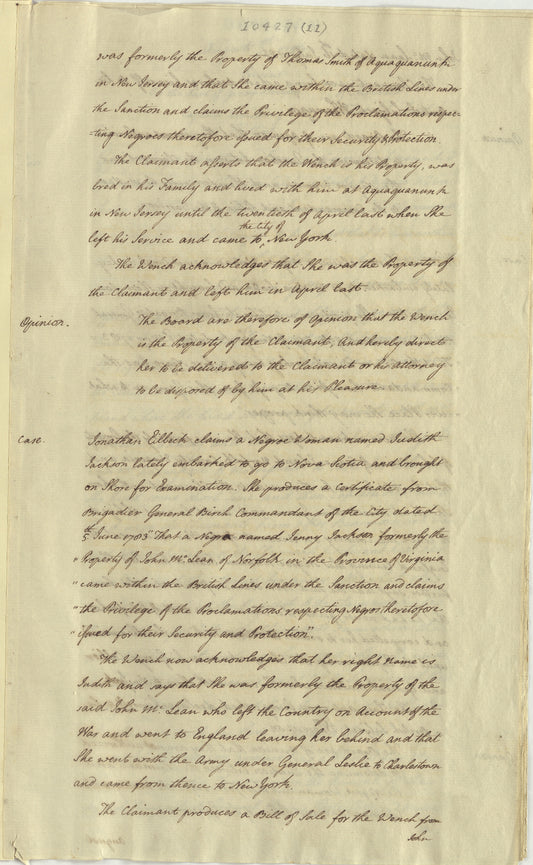 10427 (11)
was formerly the Property of Thomas Smith of Aquaquanunk
in New Jersey and that She came within the British Lines under
the Sanction and claims the Privilege of the Proclamations respec-
ting Negroes theretofore issued for their Security & Protection
The Claimant asserts that the Wench is his Property, was
bred in his Family and lived with him at Aquaquanunk
in New Jersey until the twentieth of April last when She
left his Service and came to the City of New York
The Wench acknowledges that She was the Property of
the Claimant and left him in April last.
Opinion. The Board are therefore of Opinion that the Wench
is the Property of the Claimant, And hereby direct
her to be delivered to the Claimant or his attorney
to be disposed of by him at his Pleasure
Case. Jonathan Elbeck claims a Negroe Woman named Judith
Jackson lately embarked to go to Nova Scotia and brought
on Shore for Examination. She produces a Certificate from
Brigadier General Birch Commandant of the City dated
5th June 1783 That a Negro named Jenny Jackson formerly the
"Property of John Mc. Lean of Norfolk in the Province of Virginia
"came within the British Lines under the Sanction and claims
"the Privilege of the Proclamations respecting Negros theretofore
"issued for their Security and Protection".
The Wench now acknowledges that her right Name is
Judith and says that She was formerly the Property of the
said John Mc. Lean who left the Country on Account of the
War and went to England leaving her behind and that
She went with the Army under General Leslie to Charlestown
and came from thence to New York.
The Claimant produces a Bill of Sale for the Wench from
John